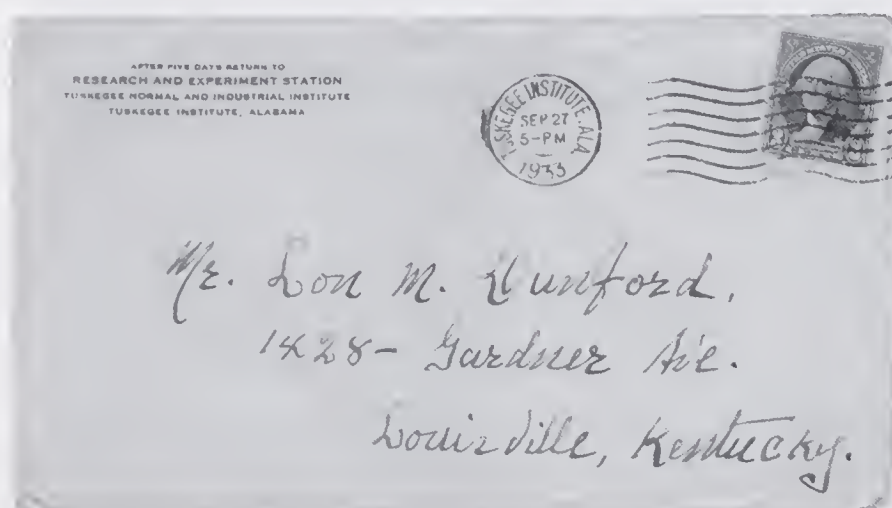 AFTER FIVE DAYS RETURN TO
RESEARCH AND EXPERIMENT STATION
TUSKEGEE NORMAL AND INDUSTRIAL INSTITUTE
TUSKEGEE INSTITUTE, ALABAMA
TUSKEGEE INSTITUTE, ALA.
SEP 27
5-PM
1933
Mr. Lon M.
1428- Gardner Ave.
Louisville, Kentucky.